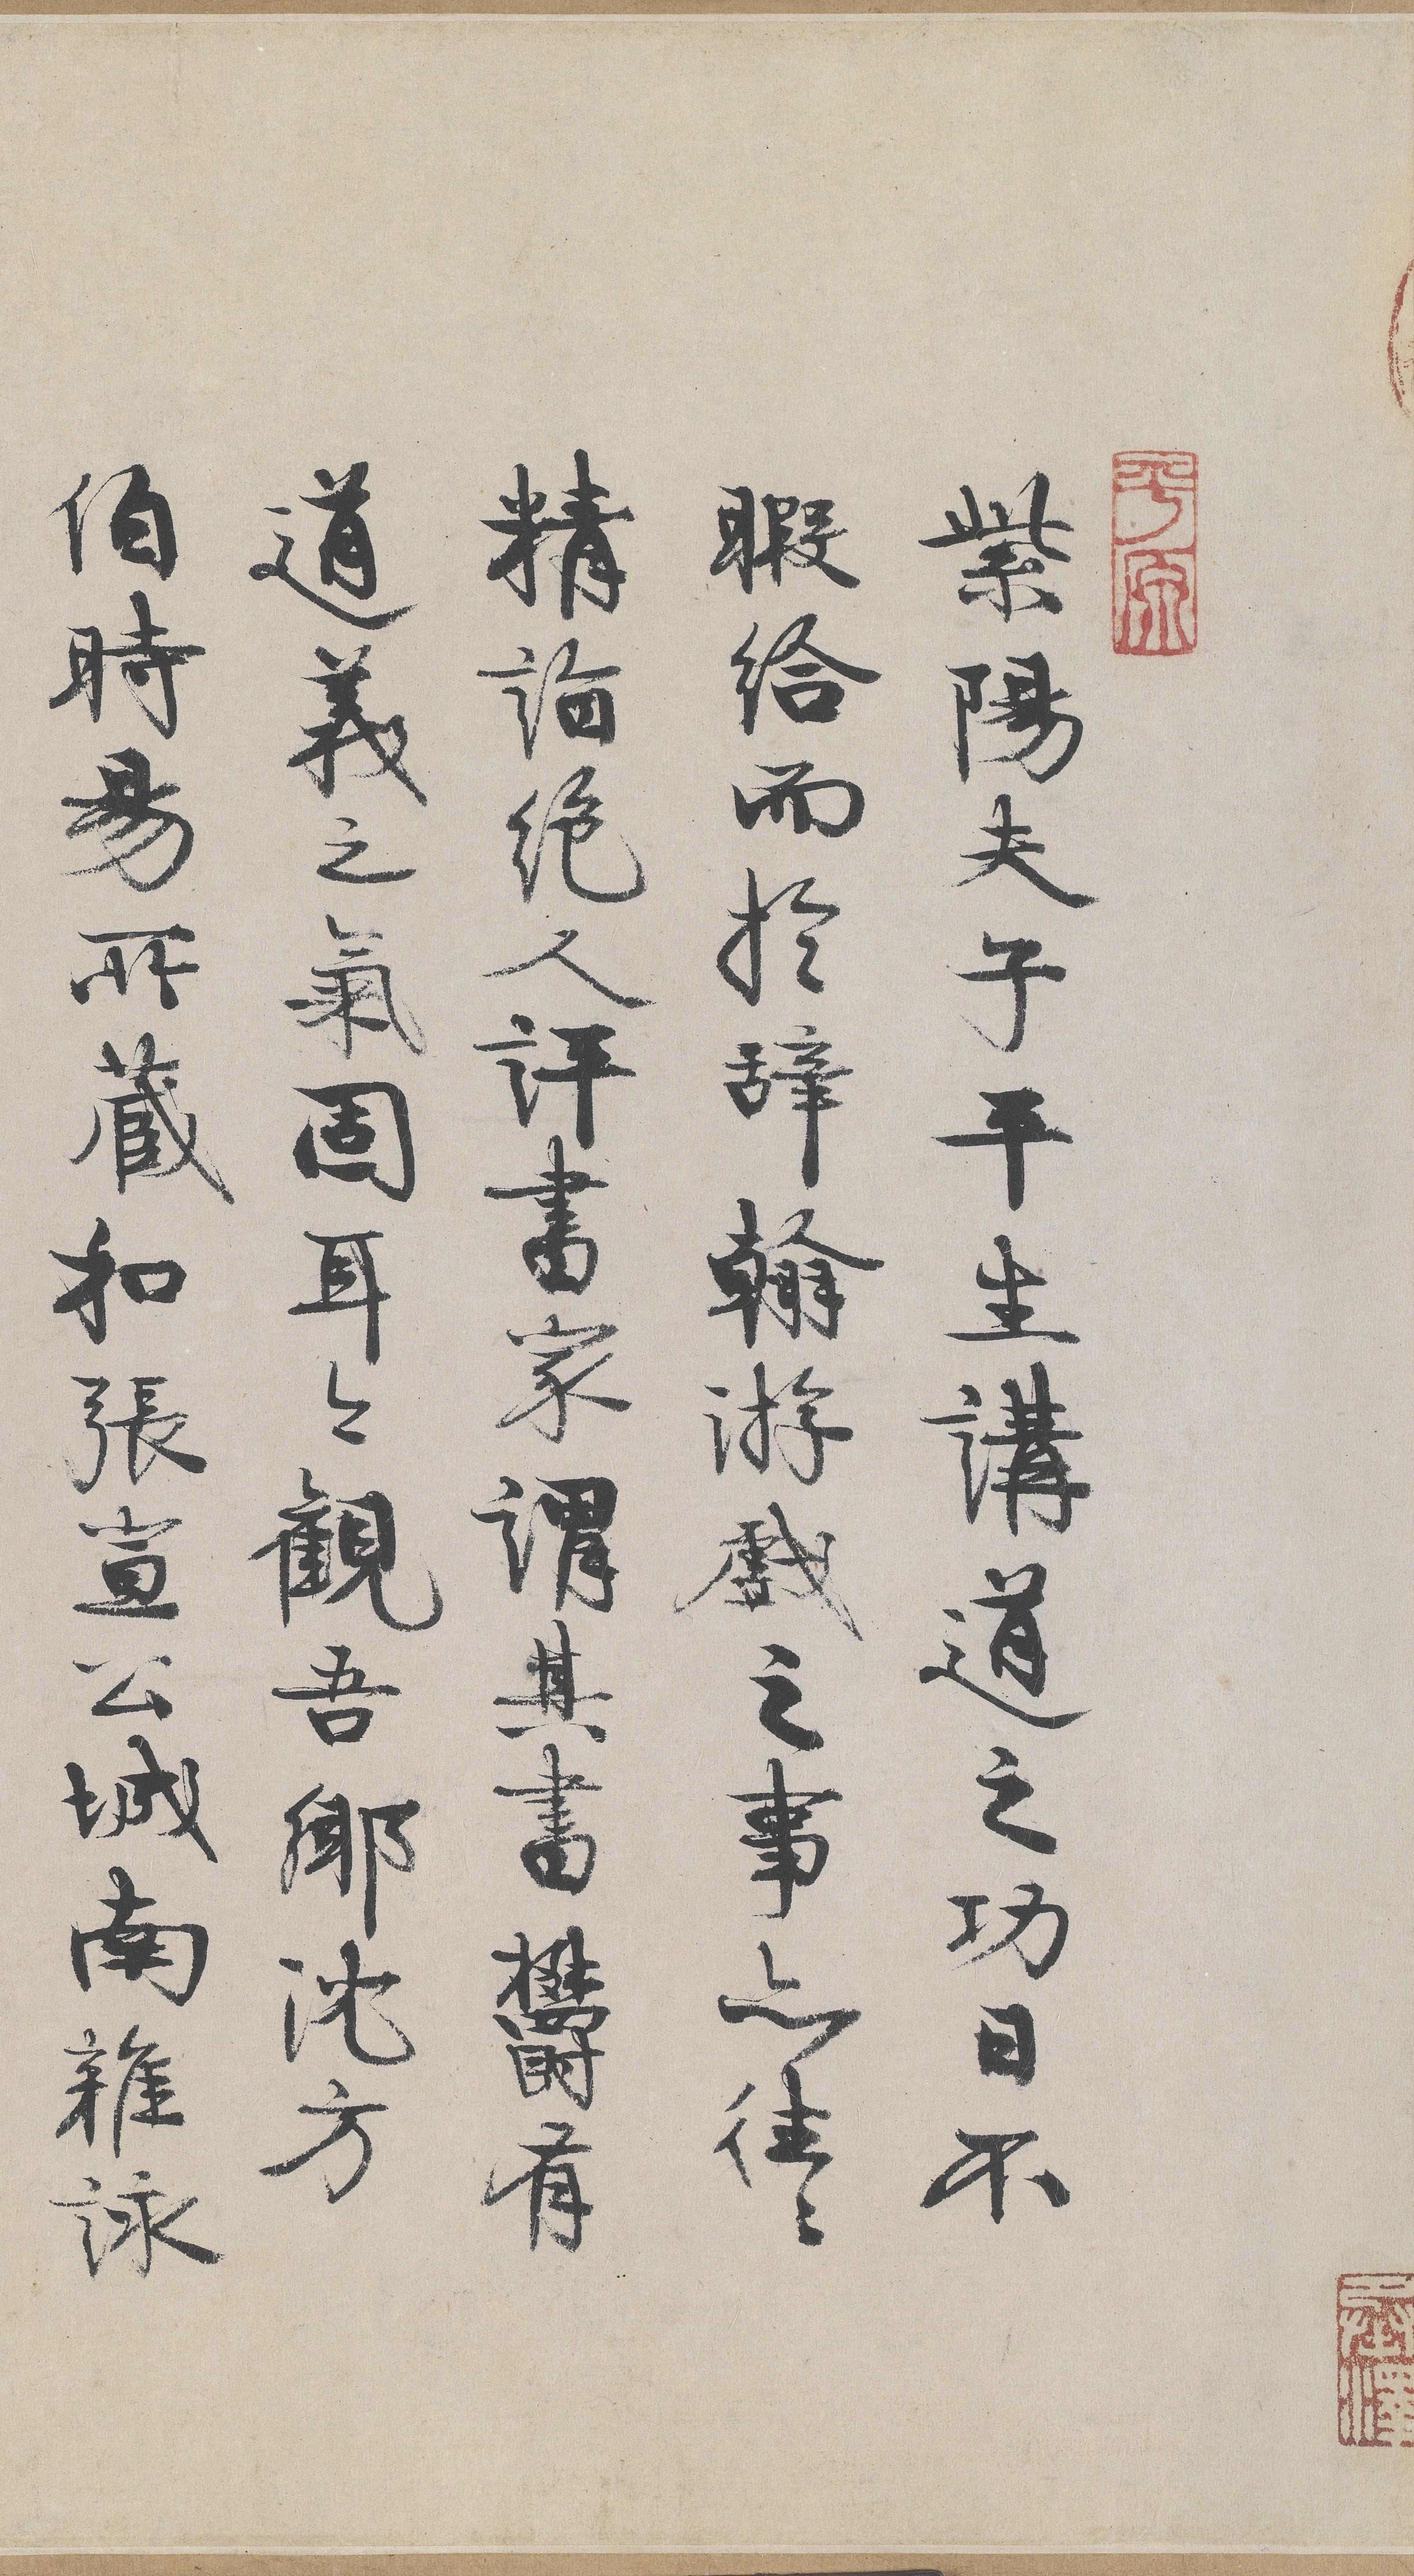 紫陽夫子平生講道之功日不
暇給而於辞翰游戯之事亦徃〻
精詣絶人評書家謂其書欝有
道義之氣固耳〻觀吾鄉沈方
伯時暘所藏和張宣公城南雜詠
平原